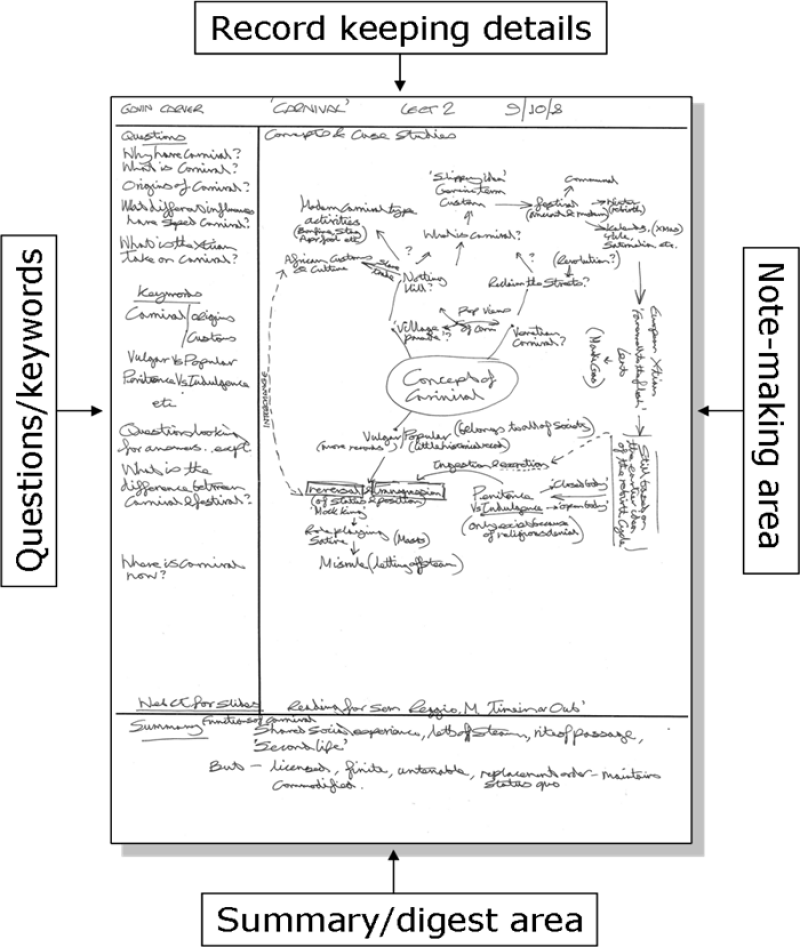 Record keeping details
'CARNIVAL' LECT 2 9/10/8
Questions
Why have Carnival?
What is Carnival?
Origins of Carnival?
What different influences
have shaped Carnival?
What is the Xtian
take on Carnival?
Keywords
Carnival/origins
/Customs
Vulgar Vs Popular
Penitence Vs Indulgence
etc
Questions looking
for answers..
What is the
difference between
Carnival & festival?
Where is Carnival
now?
for Slides
Questions/keywords
Concepts & Case Studies
'Slippery Idea'
Generic term
Custom
Communal
festival
(ancient & modern)
(rebirth)
(Xmas)
Saturnalia, etc.
Modern Carnival type
activities
African Customs
& Culture
Slave
trade
?
What is Carnival?
?
(Revolution?)
Notting
Hill?
Reclaim the Streets?
'Village
parade'?
Pop Views
of Carn
Venetian
Carnival?
Concepts of
Carnival
European Xtian
'farewell to the flesh'
Lent
(Mardi Gras)
INTERCHANGE
Vulgar/Popular (belongs to all of society)
(little historical record)
Ingestion & excretion
Still based on
the earlier idea
of the rebirth Cycle
reversal & transgression
(of status & position)
'Mock King'
Penitence
Vs Indulgence
'Closed body'
'open body'
(Only exists because
of religious denial)
Role playing
Satire
(Masks)
Misrule (letting off steam)
Reading for Sem
Note-making area
Summary
Functions of Carnival
Shared Social experience, lets off steam, rites of passage,
'Second life'
But – licensed, finite, untenable, replacement order – maintains
Commodified.
Status quo
Summary/digest area